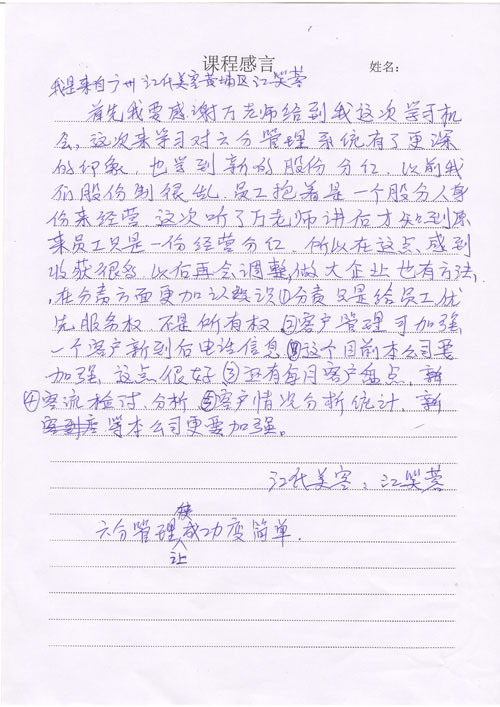 课程感言 姓名：
我是来自广州江氏美容黄埔区江笑蓉
首先我要感谢万老师给到我这次学习机
会，这次来学习对六分管理系统有了更深
的印象，也学到新的股份分红，以前我
们股份制很乱，员工抱着是一个股分人身
份来经营，这次听了万老师讲后才知到原
来员工只是一份经营分红，所以在这点感到
收获很多，以后再会调整，做大企业也有方法，
在分责方面更加认识①分责只是给员工优
先服务权，不是所有权，②客户管理可加强，
一个客户新到后电话信息 这个目前本公司要
加强，这点很好③还有每月客户盘点，
④客流检讨、分析，⑤客户情况分析统计，
等本公司更要加强。
江氏美容：江笑蓉
使
六分管理成功变简单.
让